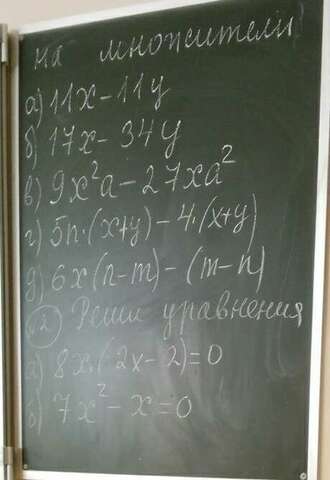 на множители
а) 11x - 11y
б) 17x - 34y
в) 9x²a - 27xa²
г) 5n·(x+y) - 4·(x+y)
д) 6x(n-m) - (m-n)
2) Реши уравнения
а) 8x·(-2x-2)=0
б) 7x² - x=0